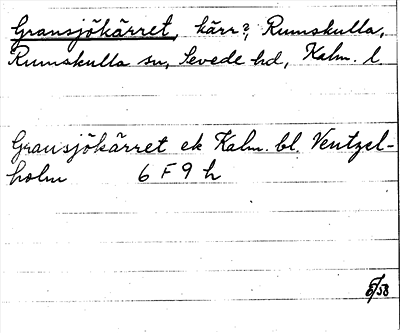 Gransjökärret, kärr?, Rumskulla,
Rumskulla sn, Sevede hd, Kalm. l.
Gransjökärret ek Kalm. bl. Ventzel-
holm 6 F 9 h
/58